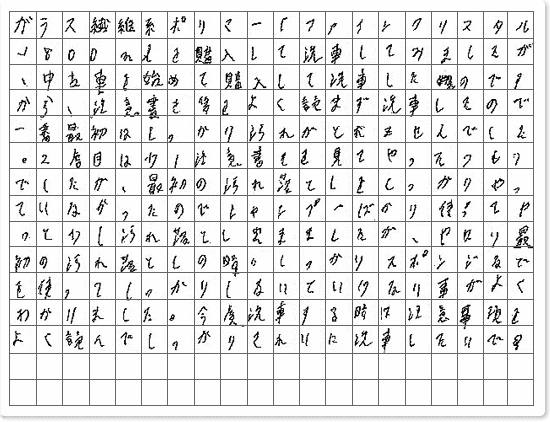 ガラス繊維系ポリマーをファインクリスタル
1800mlを購入して洗車してみましたが
、中古車を始めて購入して洗車した物のです
から、注意書を後をよく読まず洗車したので
一番最初はしっかり汚れがとれませんでした
。2度目は少し注意書をを見てやったつもり
でしたが、最初の汚れ落としをしっかりやっ
ていなかったのでシャンプーばかり使ってや
っと少し汚れ落とし出ましたが、やはり最
初の汚れ落としの時にしっかりスポンジなで
を使ってしっかりしないといけない事がよく
わかりました。今度洗車する時は注意事項を
よく読んでしっかりきれいに洗車したいです